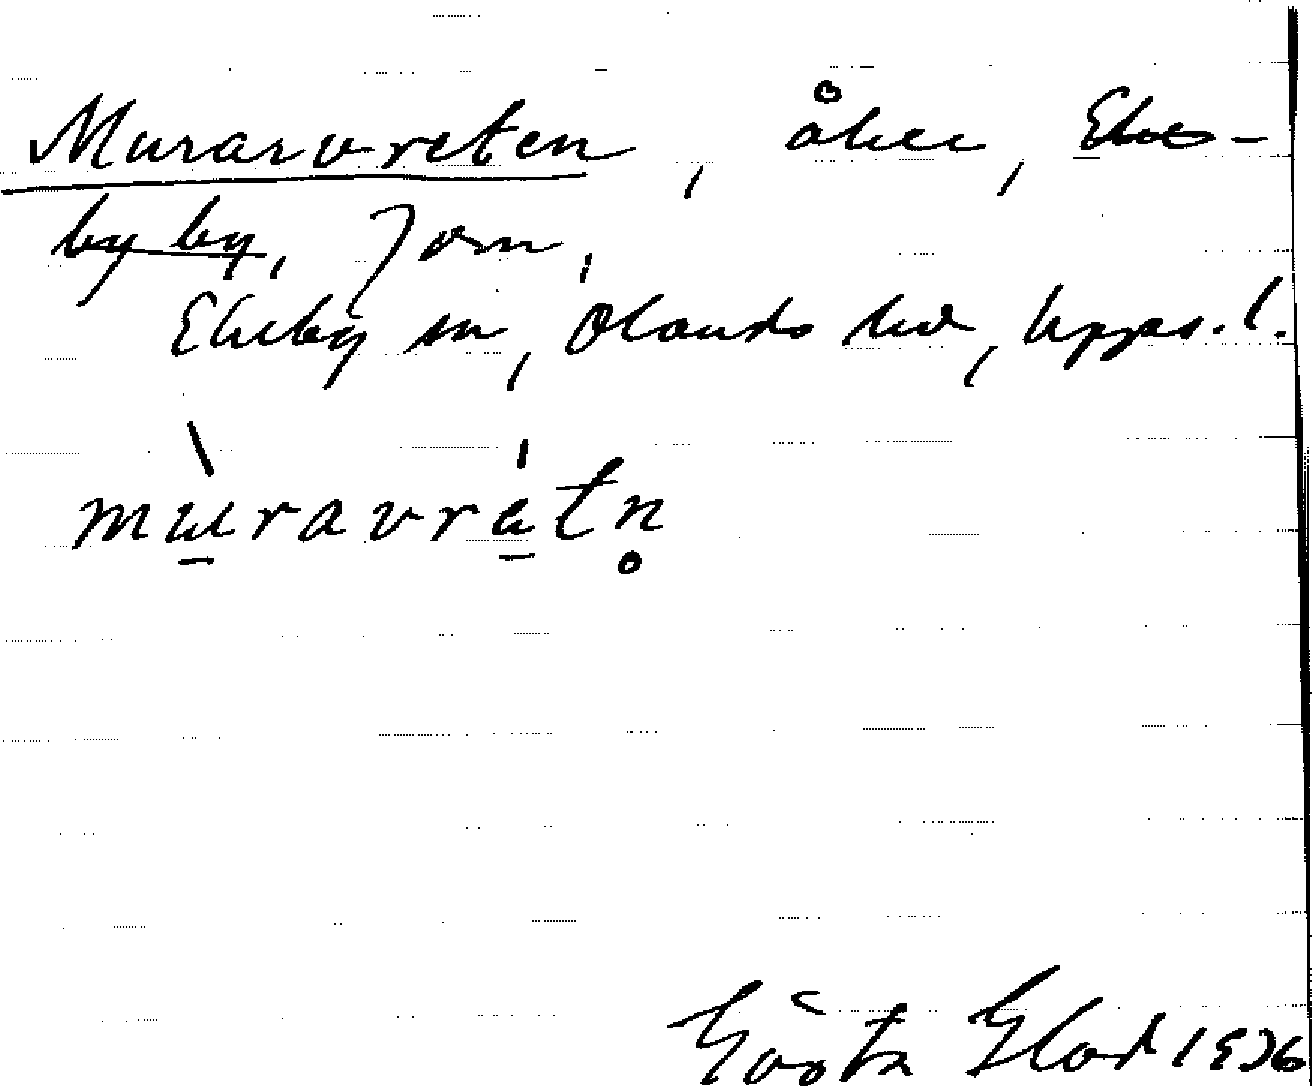 Murarvreten, åker, Eke-
by by, 7 om,
Ekeby sn, Olands hd, Upps. l.
mu̱̇ravre̱tn̥
Gösta 1936